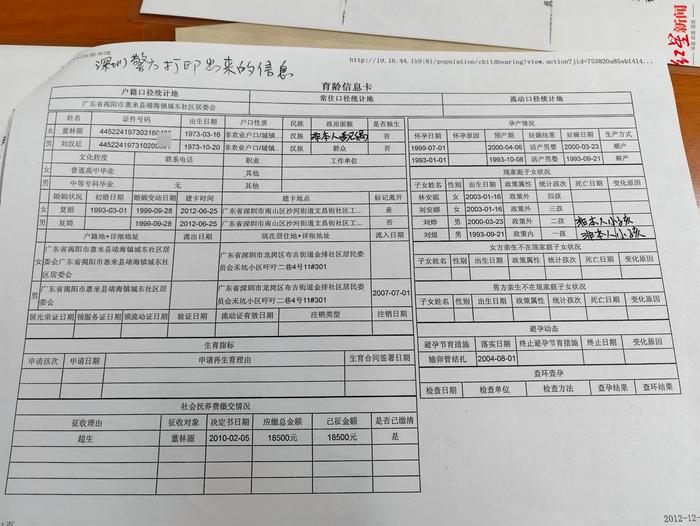 红星新闻
http://19.16.44.159:81/population/childbearing1view.action?jid=753820a85eb1414...
深圳警方打印出来的信息
育龄信息卡
户籍口径统计地 常住口径统计地 流动口径统计地
广东省揭阳市惠来县靖海镇城东社区居委会
姓名 证件号码 出生日期 户口性质 民族 政治面貌 是否独生
女 董林丽 1973-03-16 非农业户口/城镇... 汉族 否
男 刘汉廷 1973-10-20 非农业户口/城镇... 汉族 群众 否
文化程度 联系电话 职业 工作单位
女 普通高中毕业 其他
男 中等专科毕业 无 其他
婚姻状况 初婚日期 婚姻变动日期 建卡时间 建卡地点 标记离开
女 复婚 1993-03-01 1999-09-28 2012-06-25 广东省深圳市南山区沙河街道文昌街社区工... 否
男 复婚 1999-09-28 2012-06-25 广东省深圳市南山区沙河街道文昌街社区工... 否
户籍地+详细地址 流出日期 现在居住地+详细地址 流入日期
女 广东省揭阳市惠来县靖海镇城东社区居委会广东省揭阳市惠来县靖海镇城东社区居委会 广东省深圳市龙岗区布吉街道金排社区居民委员会禾坑小区吓吓二巷4号11#301
男 广东省揭阳市惠来县靖海镇城东社区居委会 广东省深圳市龙岗区布吉街道金排社区居民委员会禾坑小区吓吓二巷4号11#301 2007-07-01
领光荣证日期 领服务证日期 领流动证日期 验证日期 流动证有效日期 注销类型 注销日期
生育指标
申请孩次 申请日期 申请再生育理由 生育合同签署日期
社会抚养费缴交情况
征收理由 征收对象 决定书日期 应缴总金额 已征金额 是否已缴清
超生 董林丽 2010-02-05 18500元 18500元 是
孕产情况
怀孕日期 怀孕原因 预产期 妊娠结果 妊娠日期 生产方式
1999-07-01 2000-04-06 活产男婴 2000-03-23 顺产
1993-01-01 1993-10-08 活产男婴 1993-09-21 顺产
现家庭子女状况
子女姓名 性别 出生日期 政策属性 统计孩次 死亡日期 变化原因
林安妮 女 2003-01-16 政策外 四孩
刘安娜 女 2003-01-16 政策外 三孩
刘烨 男 2000-03-23 政策外 二孩 非本人小孩
刘煜 男 1993-09-21 政策内 一孩 非本人小孩
女方亲生不在现家庭子女状况
子女姓名 性别 出生日期 政策属性 统计孩次 死亡日期 变化原因
男方亲生不在现家庭子女状况
子女姓名 性别 出生日期 政策属性 统计孩次 死亡日期 变化原因
避孕动态
避孕节育措施 落实日期 终止避孕节育措施 终止日期 变化原因
输卵管结扎 2004-08-01
查环查孕
检查日期 检查单位 检查方法 查孕结果 查环结果
2012-12-